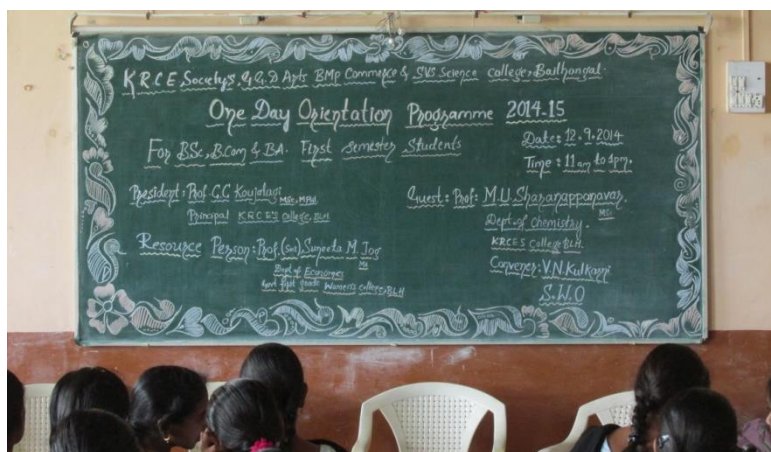 K.R.C.E. Society's, G.G.D Arts BMP Commerce & SVS Science College, Bailhongal.
One Day Orientation Programme 2014-15
For BSc, B.Com & BA. First Semester Students
Date: 12.9.2014
Time: 11 am to 1pm.
President: Prof. C.G Koujalagi MSc, MPhil
Principal KRCES College, BLH
Guest: Prof: M.U. Sharanappanavar. MSc
Dept. of Chemistry.
KRCES College BLH.
Resource Person: Prof. (Smt) Suneeta M Jog MA
Dept of Economics
Govt first grade Women's college, BLH
Convener: V.N. Kulkarni
S.W.O